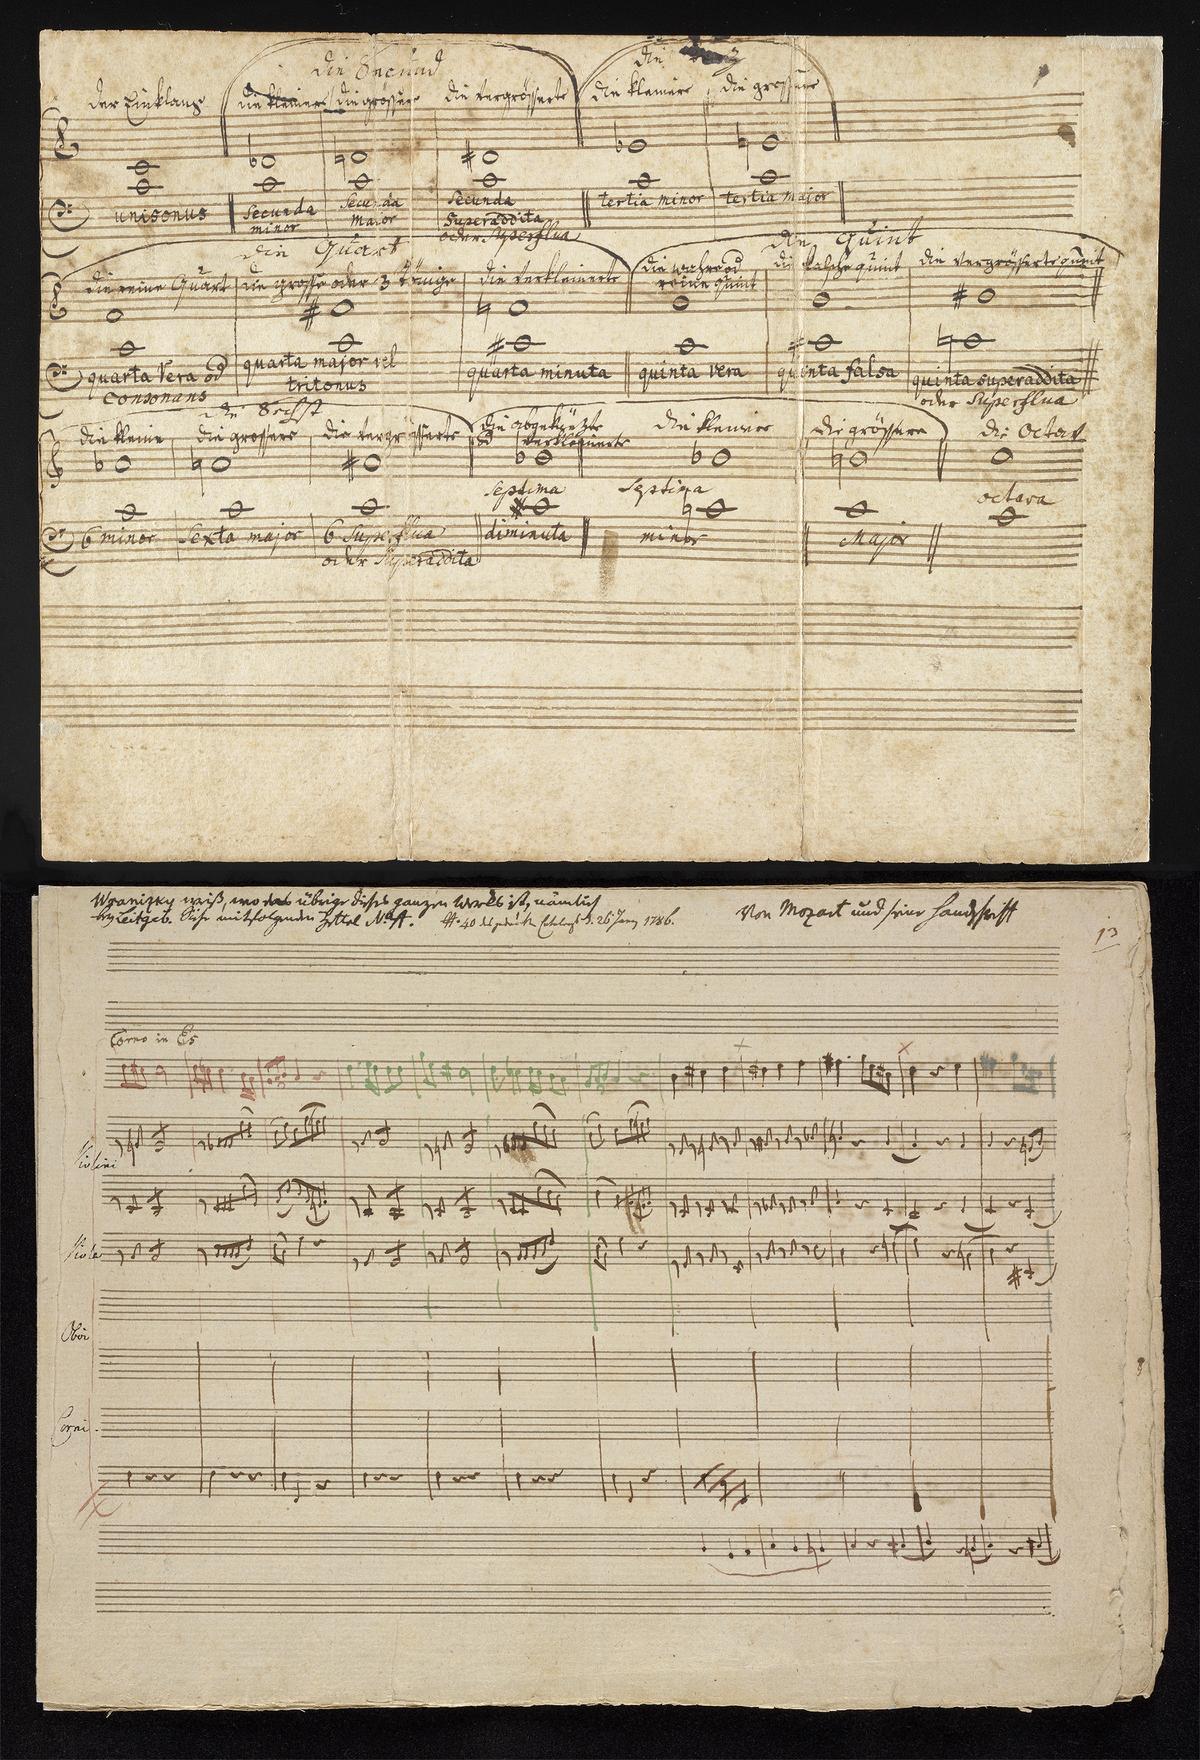 die Secund
die
der Einklang die kleinere die grössere die vergrösserte die kleinere die grössere
unisonus Secunda minor Secunda major Secunda Superaddita oder Superflua tertia minor tertia major
die Quart die Quint
die reine Quart die grosse oder 3 tönige die verkleinerte die wahre od reine quint die falsche quint die vergrösserte quint
quarta vera od consonans quarta major vel tritonus quarta minuta quinta vera quinta falsa quinta superaddita oder Superflua
die Sechst
die kleine die grössere die vergrösserte die abgekürzte od verkleinerte die kleinere die grössere die Octav
6 minor Sexta major 6 Superflua oder Superaddita septima diminuta septima minor Major octava
Wranizky weiß, wo das übrige dieses ganzen Werks ist, nämlich
bey Leitgeb. Siehe mitfolgenden Zettel
26 Juny 1786.
Von Mozart und seine Handschrift
13
Corno in Es
Violini
Viola
Oboi
Corni